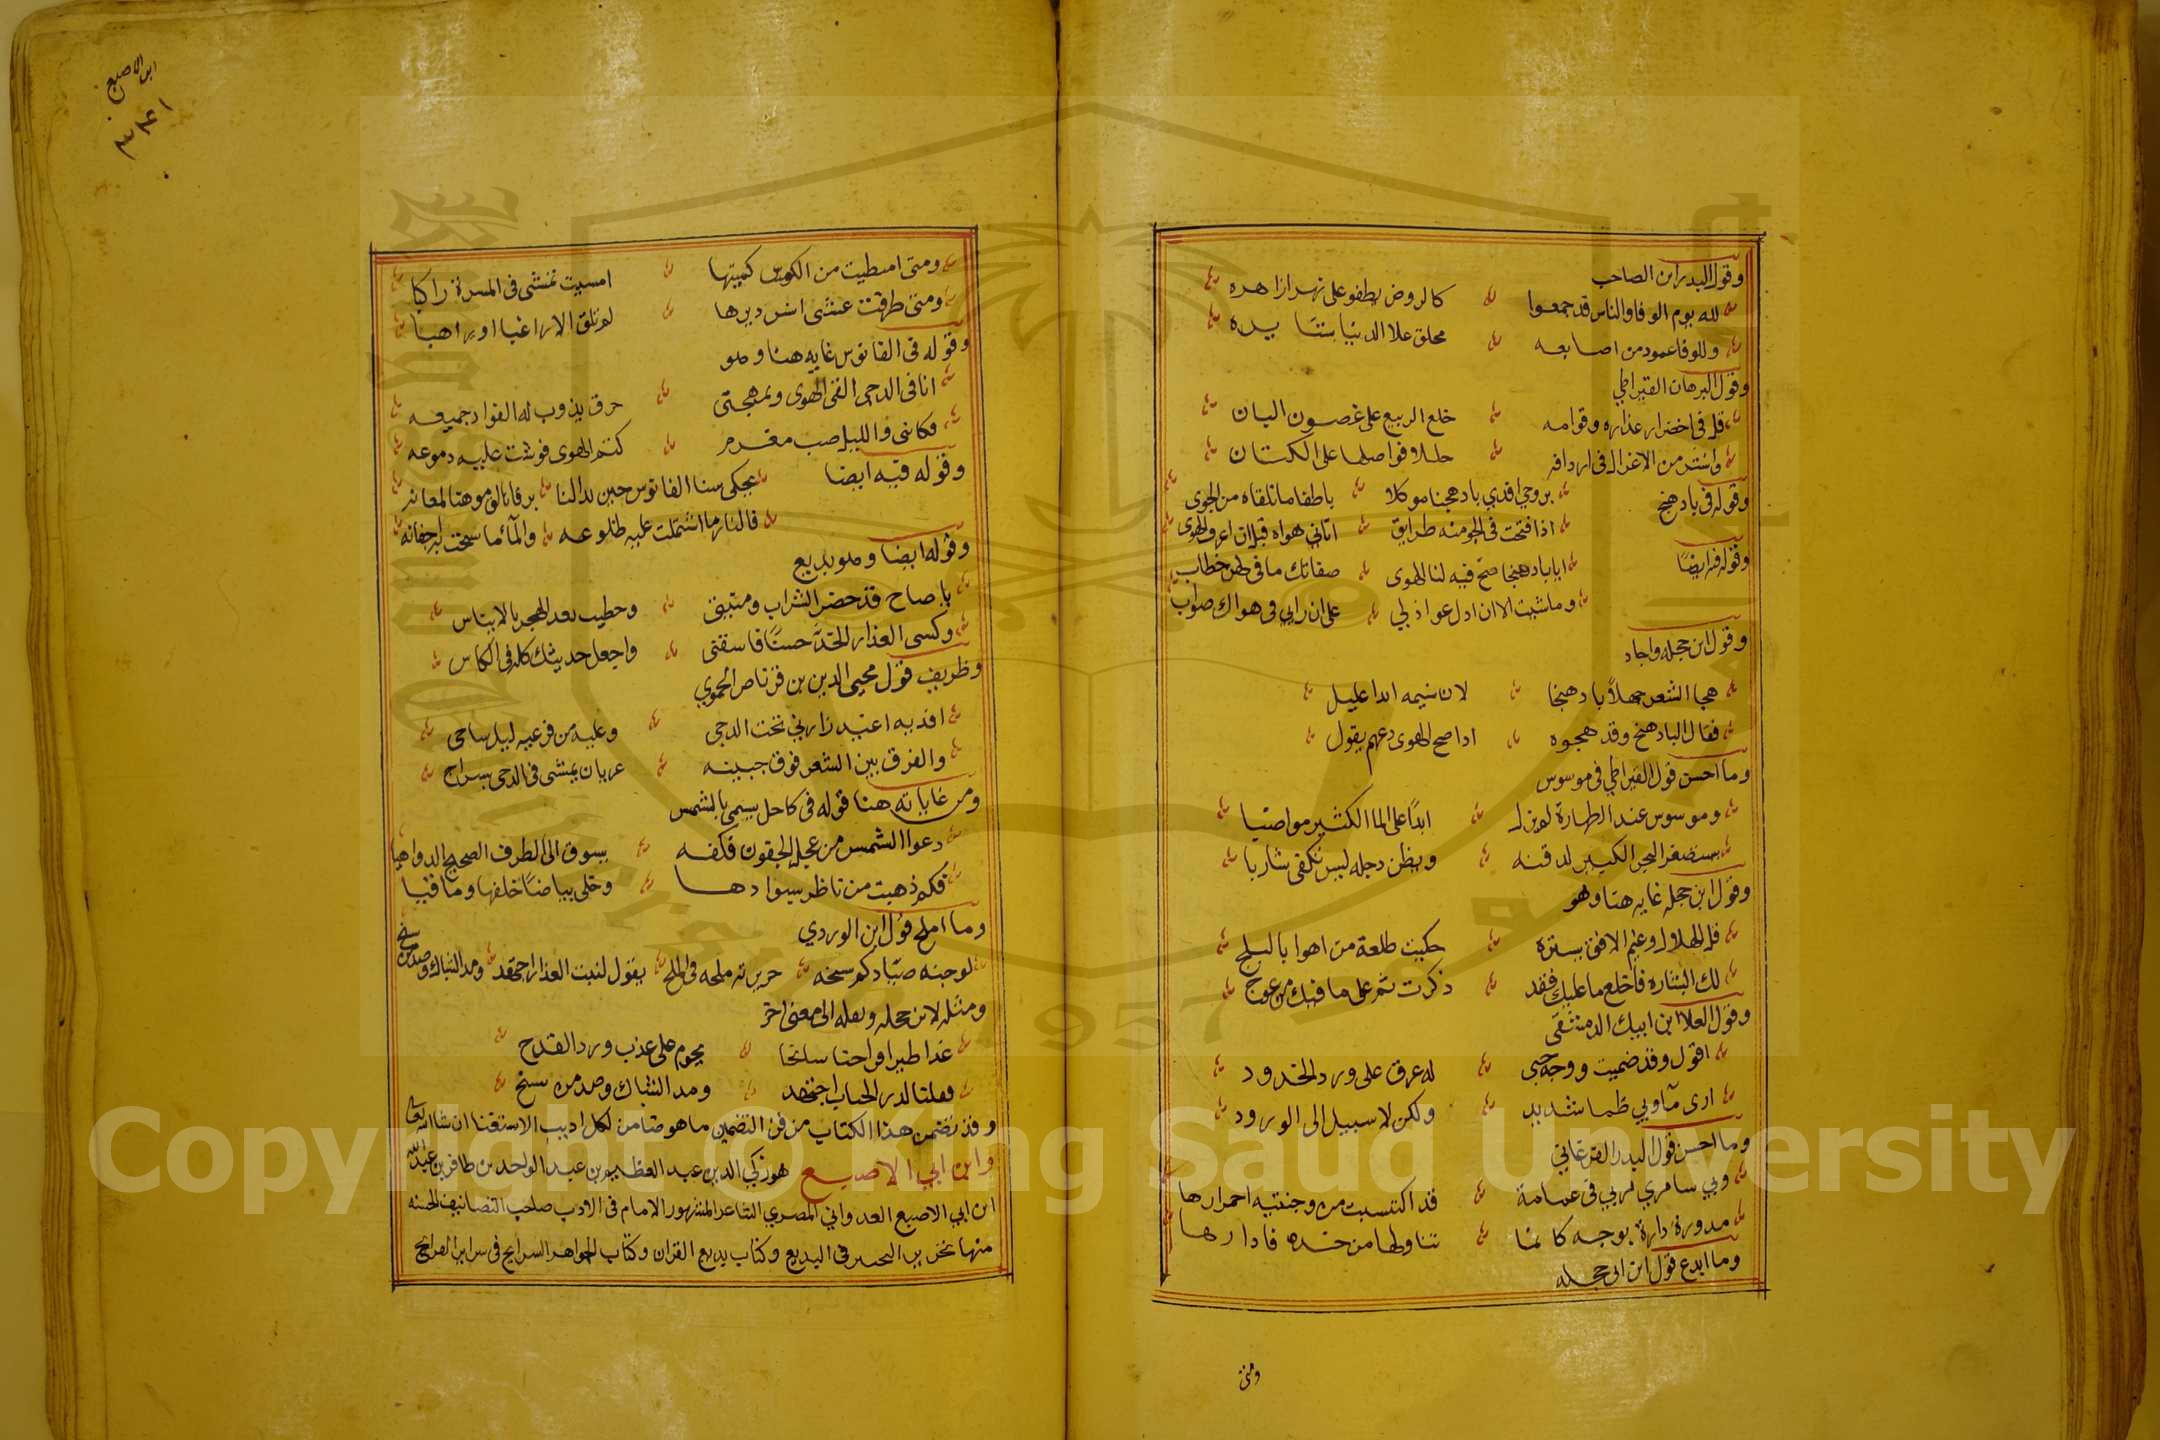 وقول البدر ابن الصاحب
لله يوم الوفا والناس قد جمعوا كالروض يطفو على نهر ازاهره
وللوفا عمود من اصابعه مخلق علا الدنيا بشايره
وقول البرهان القيراطي
قل في اخضرار عذاره وقوامه خلع الربيع على غصون البان
وانشر من الاغزال في اردافه حللا فواصلها على الكثبان
وقوله في بادهنج بروحي افدي بادهنجا موكلا باطفا ما تلقاه من الجوى
اذا فتحت في الجو منه طرايق اتاني هواه قبل ان اعرف الهوى
وقوله فيه ايضا ايا بادهنجا صح فيه لنا الهوى صفاتك ما في لهن خطاب
وما شيت الا ان ادل عواذلي على ان رايي في هواك صواب
وقول ابن حجله واجاد
هجا الشعر جهلا بادهنجا لان نسيمه ابدا عليل
فقال البادهنج وقد هجوه اذا صح الهوى دعهم يقول
وما احسن قول القيراطي في موسوس
وموسوس عند الطهارة لم يزل ابدا على الما الكثير مواضبا
يستصغر البحر الكبير لذقنه ويظن دجله ليس تكفي شاربا
وقول ابن حجله غايه هنا وهو
قل للهلال وغيم الافق يستره حكيت طلعة من اهوا بالبلج
لك البشارة فاخلع ما عليك فقد ذكرت ثم على ما فيك من عوج
وقول العلا ابن ايبك الدمشقي
اقول وقد ضميت ووجه حبي له عرق على ورد الخدود
ارى مآ وبي ظما شديد ولكن لا سبيل الى الورود
وما احسن قول البدر الفرغاني
وبي سامري مر بي في عمامة قد اكتسبت من وجنتيه احمرارها
مدورة دارة بوجه كانما تناولها من خده فادارها
وما ابدع قول ابن ابي حجله
ومتى
ابن الاصبع
ومتى امتطيت من الكوس كميتها امسيت تمشى في المسرة راكبا
ومتى طرقت عشي انس ديرها لم تلق الا راغبا او راهبا
وقوله في الفانوس غايه هنا وهو
انا في الدجى الفي الهوى وبمهجتي حرق يذوب له الفواد جميعه
فكانني والليل صب مغرم كتم الهوى فوشت عليه دموعه
وقوله فيه ايضا يحكي سنا الفانوس حين بدا لنا برقا تالق موهنا لمعانه
فالنار ما اشتملت عليه ضلوعه والمآ ما سحت به اجفانه
وقوله ايضا وهو بديع
يا صاح قد حضر الشراب ومنيتي وحظيت بعد الهجر بالايناس
وكسى العذار الخد حسنا فاسقني واجعل حديثك كله في الكاس
وظريف قول محيي الدين بن قرناص الحموي
افديه اغيد زارني تحت الدجى وعليه من فرعيه ليل ساجي
والفرق بين الشعر فوق جبينه عريان يمشى في الدجى بسراج
ومن غاياته هنا قوله في كاحل يسمى بالشمس
دعوا الشمس من كحل الجفون فكفه يسوق الى الطرف الصحيح الدواهيا
فكم ذهبت من ناظر بسوادها وخلى بياضا خلفها وماقيا
وما املح قول ابن الوردي
ومثله لابن حجله ونقله الى معنى اخر
غدا طير افراحنا سانحا يحوم على عذب ورد القدح
فقلنا لدر الحباب اجتهد ومد الشباك وصد من سنح
وقد تضمن هذا الكتاب من فن التضمين ما هو ضامن لكل اديب الاستغنا ان شا الله تعالى
وابن ابي الاصبع هو زكي الدين عبد العظيم بن عبد الواحد بن ظافر بن عبد الله
ابن ابي الاصبع العدواني المصري الشاعر المشهور الامام في الادب صاحب التصانيف الحسنه
منها تحرير التحبير في البديع وكتاب بديع القران وكتاب الجواهر السرايح في سراير القرايح
Copyright © King Saud University
1957